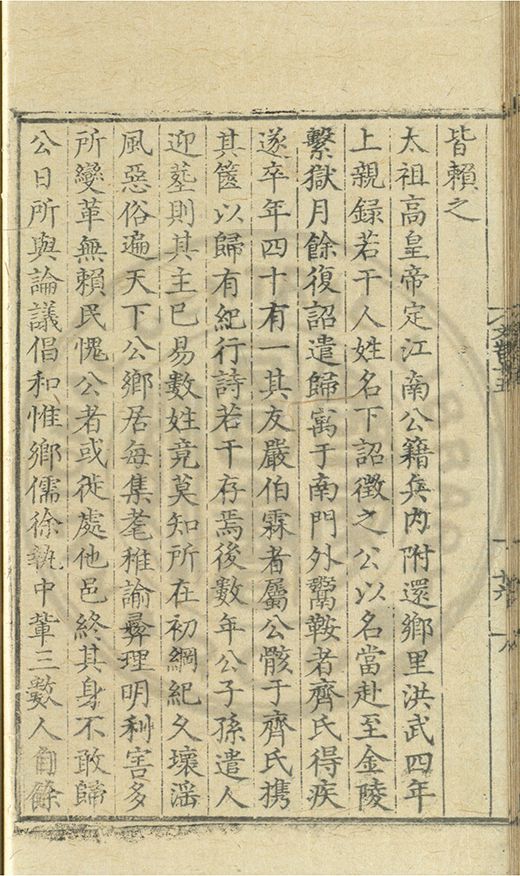 皆賴之
太祖高皇帝定江南公籍兵內附還鄉里洪武四年
上親録若干人姓名下詔徵之公以名當赴至金陵
繫獄月餘復詔遣歸寓于南門外鬻鞍者齊氏得疾
遂卒年四十有一其友嚴伯霖者屬公骸于齊氏携
其篋以歸有紀行詩若干存焉後數年公子孫遣人
迎塟則其主已易數姓竟莫知所在初綱紀久壞滛
風惡俗遍天下公鄉居每集耄稚諭彛理明利害多
所變革無賴民愧公者或徙處他邑終其身不敢歸
公日所與論議倡和惟鄉儒徐執中軰三數人自餘